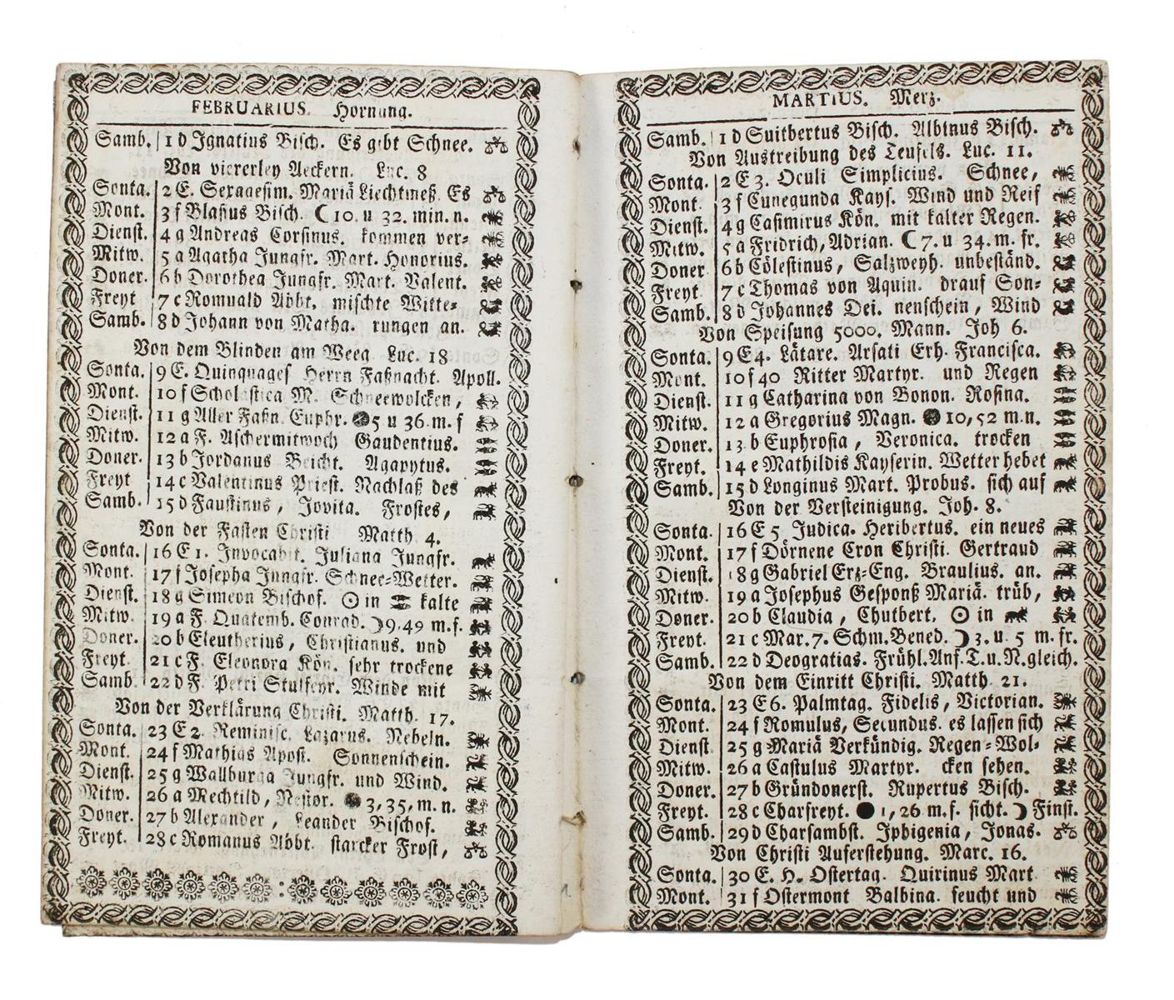 FEBRUARIUS. Hornung.
Samb. 1 d Ignatius Bisch. Es gibt Schnee.
Von viererley Aeckern. Luc. 8
Sonta. 2 E. Sexagesim. Mariä Liechtmeß. Es
Mont. 3 f Blasius Bisch. ☾ 10. u 32. min. n.
Dienst. 4 g Andreas Corsinus. kommen ver-
Mitw. 5 a Agatha Jungfr. Mart. Honorius.
Doner. 6 b Dorothea Jungfr. Mart. Valent.
Freyt 7 c Romuald Abbt. mischte Witte-
Samb. 8 d Johann von Matha. rungen an.
Von dem Blinden am Weeg Luc. 18
Sonta. 9 E. Quinquages Herrn Faßnacht. Apoll.
Mont. 10 f Scholastica M. Schneewolcken,
Dienst. 11 g Aller Faßn. Euphr. ● 5 u 36. m. f
Mitw. 12 a F. Aschermitwoch Gaudentius.
Doner. 13 b Jordanus Beicht. Agapytus.
Freyt 14 c Valentinus Priest. Nachlaß des
Samb. 15 d Faustinus, Jovita. Frostes,
Von der Fasten Christi Matth. 4.
Sonta. 16 E 1. Invocabit. Juliana Jungfr.
Mont. 17 f Josepha Jungfr. Schnee-Wetter.
Dienst. 18 g Simeon Bischof. ☉ in ♓ kalte
Mitw. 19 a F. Quatemb. Conrad. ☽ 9. 49 m. f.
Doner. 20 b Eleutherius, Christianus. und
Freyt. 21 c F. Eleonora Kön. sehr trockene
Samb 22 d F. Petri Stulfeyr. Winde mit
Von der Verklärung Christi. Matth. 17.
Sonta. 23 E 2. Reminisc. Lazarus. Nebeln.
Mont. 24 f Mathias Apost. Sonnenschein.
Dienst. 25 g Wallburga Jungfr. und Wind.
Mitw. 26 a Mechtild, Nestor. ● 3, 35, m. n.
Doner. 27 b Alexander, Leander Bischof.
Freyt. 28 c Romanus Abbt. starcker Frost,
MARTIUS. Merz.
Samb. 1 d Suitbertus Bisch. Albinus Bisch.
Von Austreibung des Teufels. Luc. 11.
Sonta. 2 E 3. Oculi Simplicius. Schnee,
Mont. 3 f Cunegunda Kays. Wind und Reif
Dienst. 4 g Casimirus Kön. mit kalter Regen.
Mitw. 5 a Fridrich, Adrian. ☾ 7. u 34. m. fr.
Doner 6 b Cölestinus, Salzweyh. unbeständ.
Freyt 7 c Thomas von Aquin. drauf Son-
Samb. 8 d Johannes Dei. nenschein, Wind
Von Speisung 5000. Mann. Joh 6.
Sonta. 9 E 4. Lätare. Arsati Erh. Francisca.
Mont. 10 f 40 Ritter Martyr. und Regen
Dienst. 11 g Catharina von Bonon. Rosina.
Mitw. 12 a Gregorius Magn. ● 10, 52 m. n.
Doner. 13 b Euphrosia, Veronica. trocken
Freyt. 14 e Mathildis Kayserin. Wetter hebet
Samb. 15 d Longinus Mart. Probus. sich auf
Von der Versteinigung. Joh. 8.
Sonta. 16 E 5. Judica. Heribertus. ein neues
Mont. 17 f Dörnene Cron Christi. Gertraud
Dienst. 18 g Gabriel Erz-Eng. Braulius. an.
Mitw. 19 a Josephus Gesponß Mariä. trüb,
Doner. 20 b Claudia, Chutbert. ☉ in ♈
Freyt. 21 c Mar. 7. Schm. Bened. ☽ 3. u. 5 m. fr.
Samb. 22 d Deogratias. Frühl. Anf. T. u. N. gleich.
Von dem Einritt Christi. Matth 21.
Sonta. 23 E 6. Palmtag. Fidelis, Victorian.
Mont. 24 f Romulus, Secundus. es lassen sich
Dienst 25 g Mariä Verkündig. Regen-Wol-
Mitw. 26 a Castulus Martyr. cken sehen.
Doner. 27 b Gründonerst. Rupertus Bisch.
Freyt. 28 c Charfreyt. ● 1, 26 m. f. sicht. ☽ Finst.
Samb. 29 d Charsambst. Iphigenia, Jonas.
Von Christi Auferstehung. Marc. 16.
Sonta. 30 E. H. Ostertag. Quirinus Mart
Mont. 31 f Ostermont Balbina. feucht und